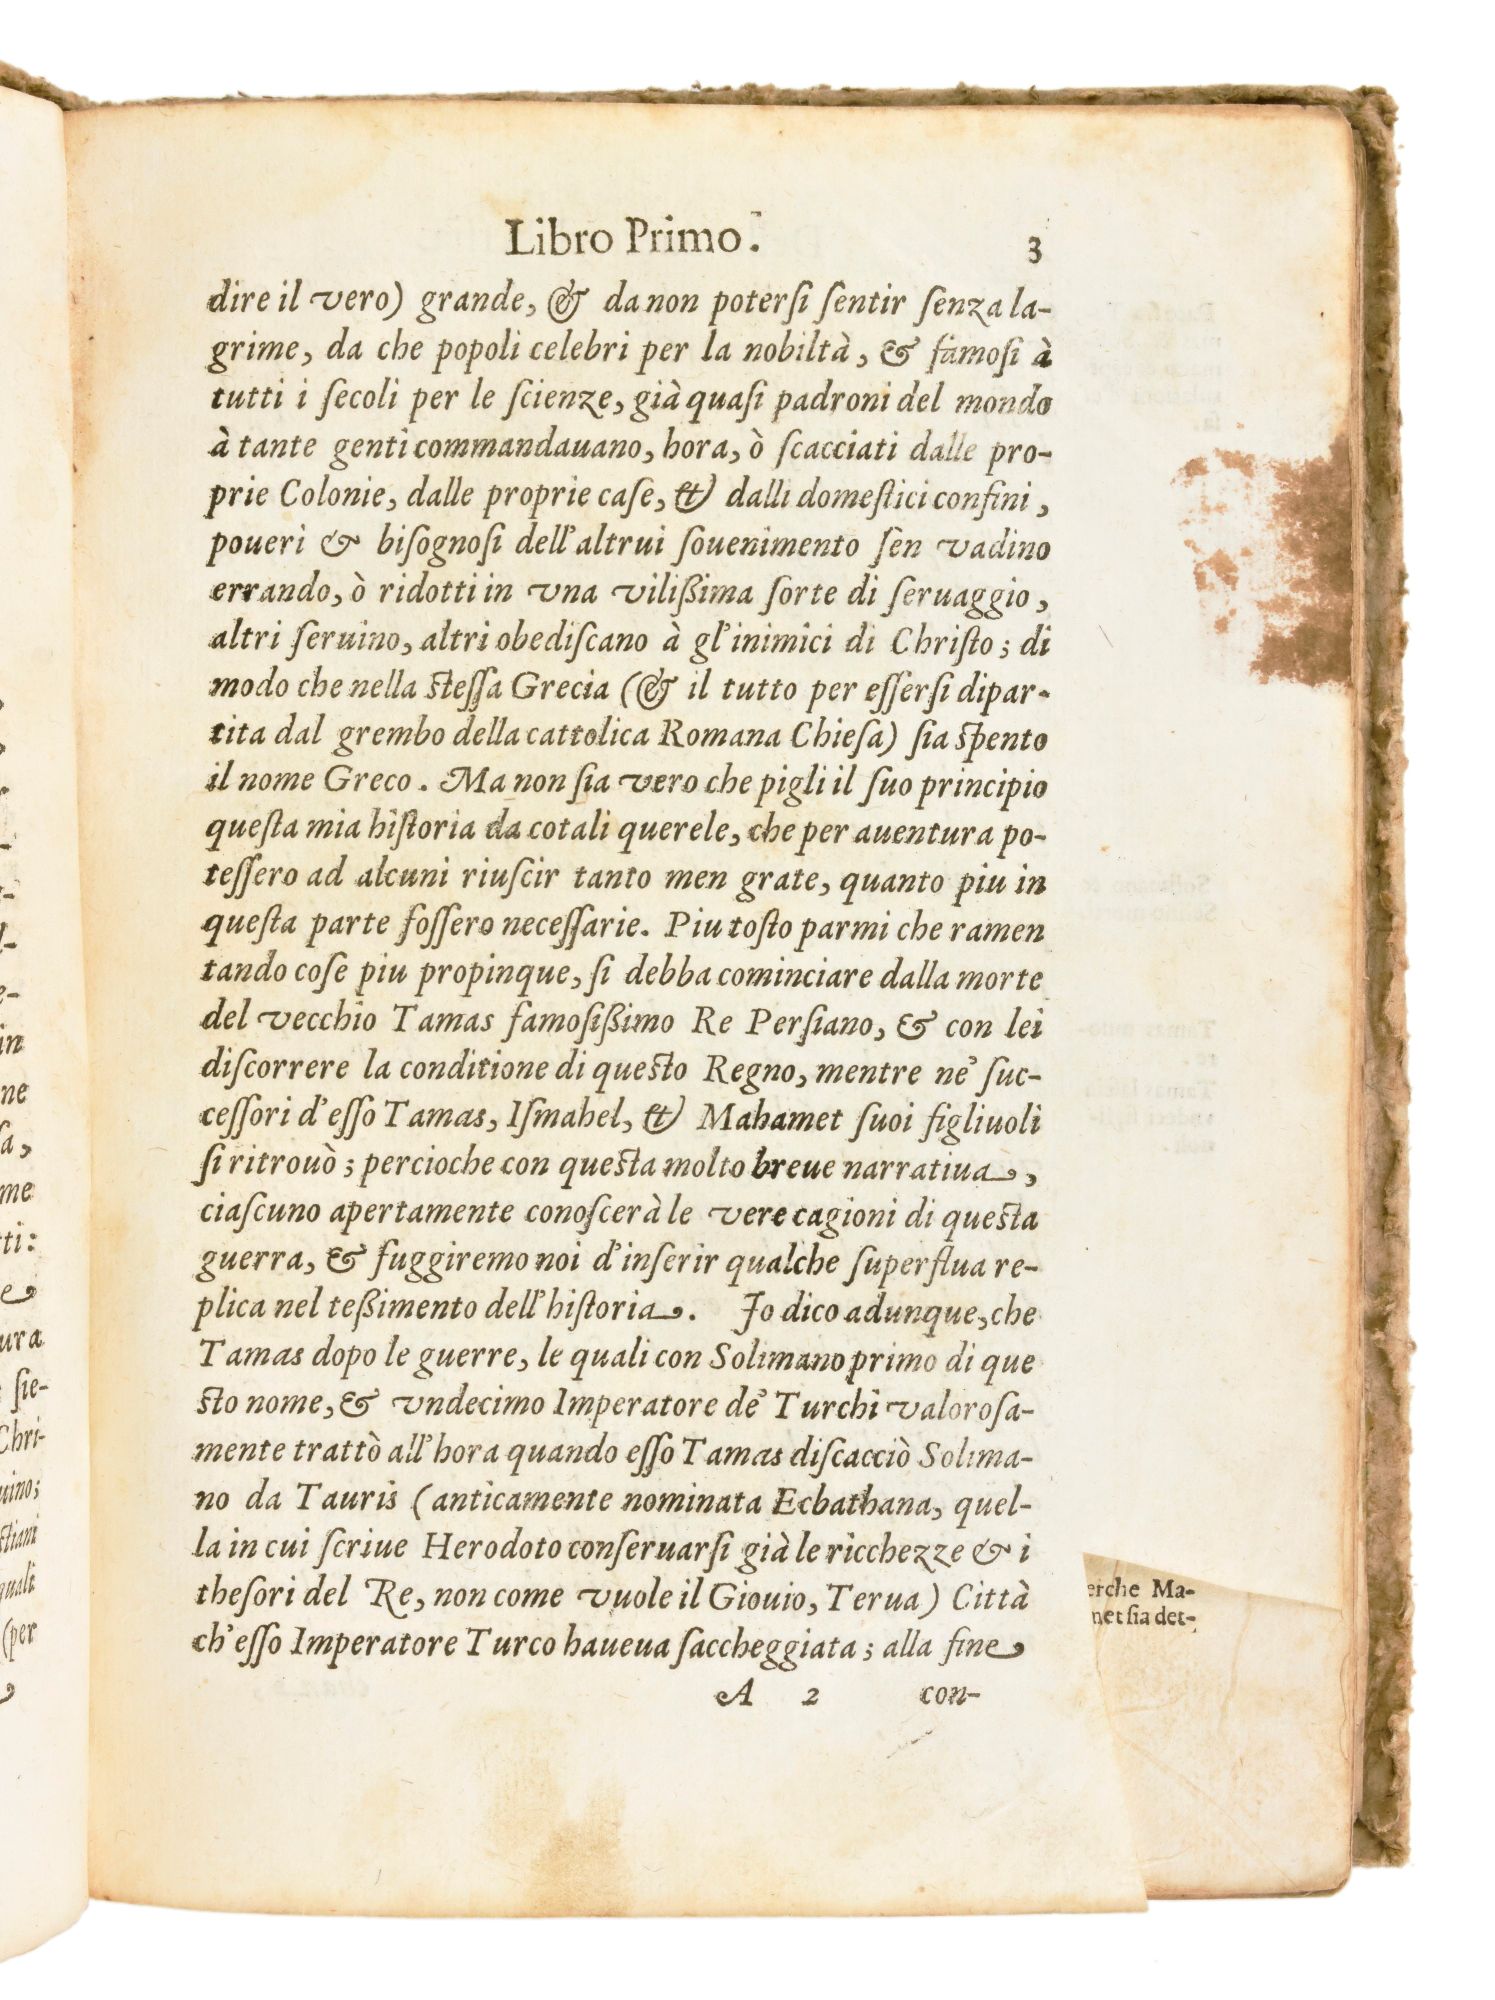 Libro Primo.
3
dire il vero) grande, & da non potersi sentir senza la-
grime, da che popoli celebri per la nobiltà, & famosi à
tutti i secoli per le scienze, già quasi padroni del mondo
à tante genti commandauano, hora, ò scacciati dalle pro-
prie Colonie, dalle proprie case, & dalli domestici confini,
poueri & bisognosi dell'altrui souenimento sen vadino
errando, ò ridotti in vna vilißima sorte di seruaggio,
altri seruino, altri obediscano à gl'inimici di Christo; di
modo che nella stessa Grecia (& il tutto per essersi dipar-
tita dal grembo della cattolica Romana Chiesa) sia spento
il nome Greco. Ma non sia vero che pigli il suo principio
questa mia historia da cotali querele, che per auentura po-
tessero ad alcuni riuscir tanto men grate, quanto piu in
questa parte fossero necessarie. Piu tosto parmi che ramen
tando cose piu propinque, si debba cominciare dalla morte
del vecchio Tamas famosißimo Re Persiano, & con lei
discorrere la conditione di questo Regno, mentre ne' suc-
cessori d'esso Tamas, Ismahel, & Mahamet suoi figliuoli
si ritrouò; percioche con questa molto breue narratiua,
ciascuno apertamente conoscerà le vere cagioni di questa
guerra, & fuggiremo noi d'inserir qualche superflua re-
plica nel teßimento dell'historia. Io dico adunque, che
Tamas dopo le guerre, le quali con Solimano primo di que
sto nome, & vndecimo Imperatore de' Turchi valorosa-
mente trattò all'hora quando esso Tamas discacciò Solima-
no da Tauris (anticamente nominata Ecbathana, quel-
la in cui scriue Herodoto conseruarsi già le ricchezze & i
thesori del Re, non come vuole il Giouio, Terua) Città
ch'esso Imperatore Turco haueua saccheggiata; alla fine
A 2 con-
erche Ma-
met sia det-